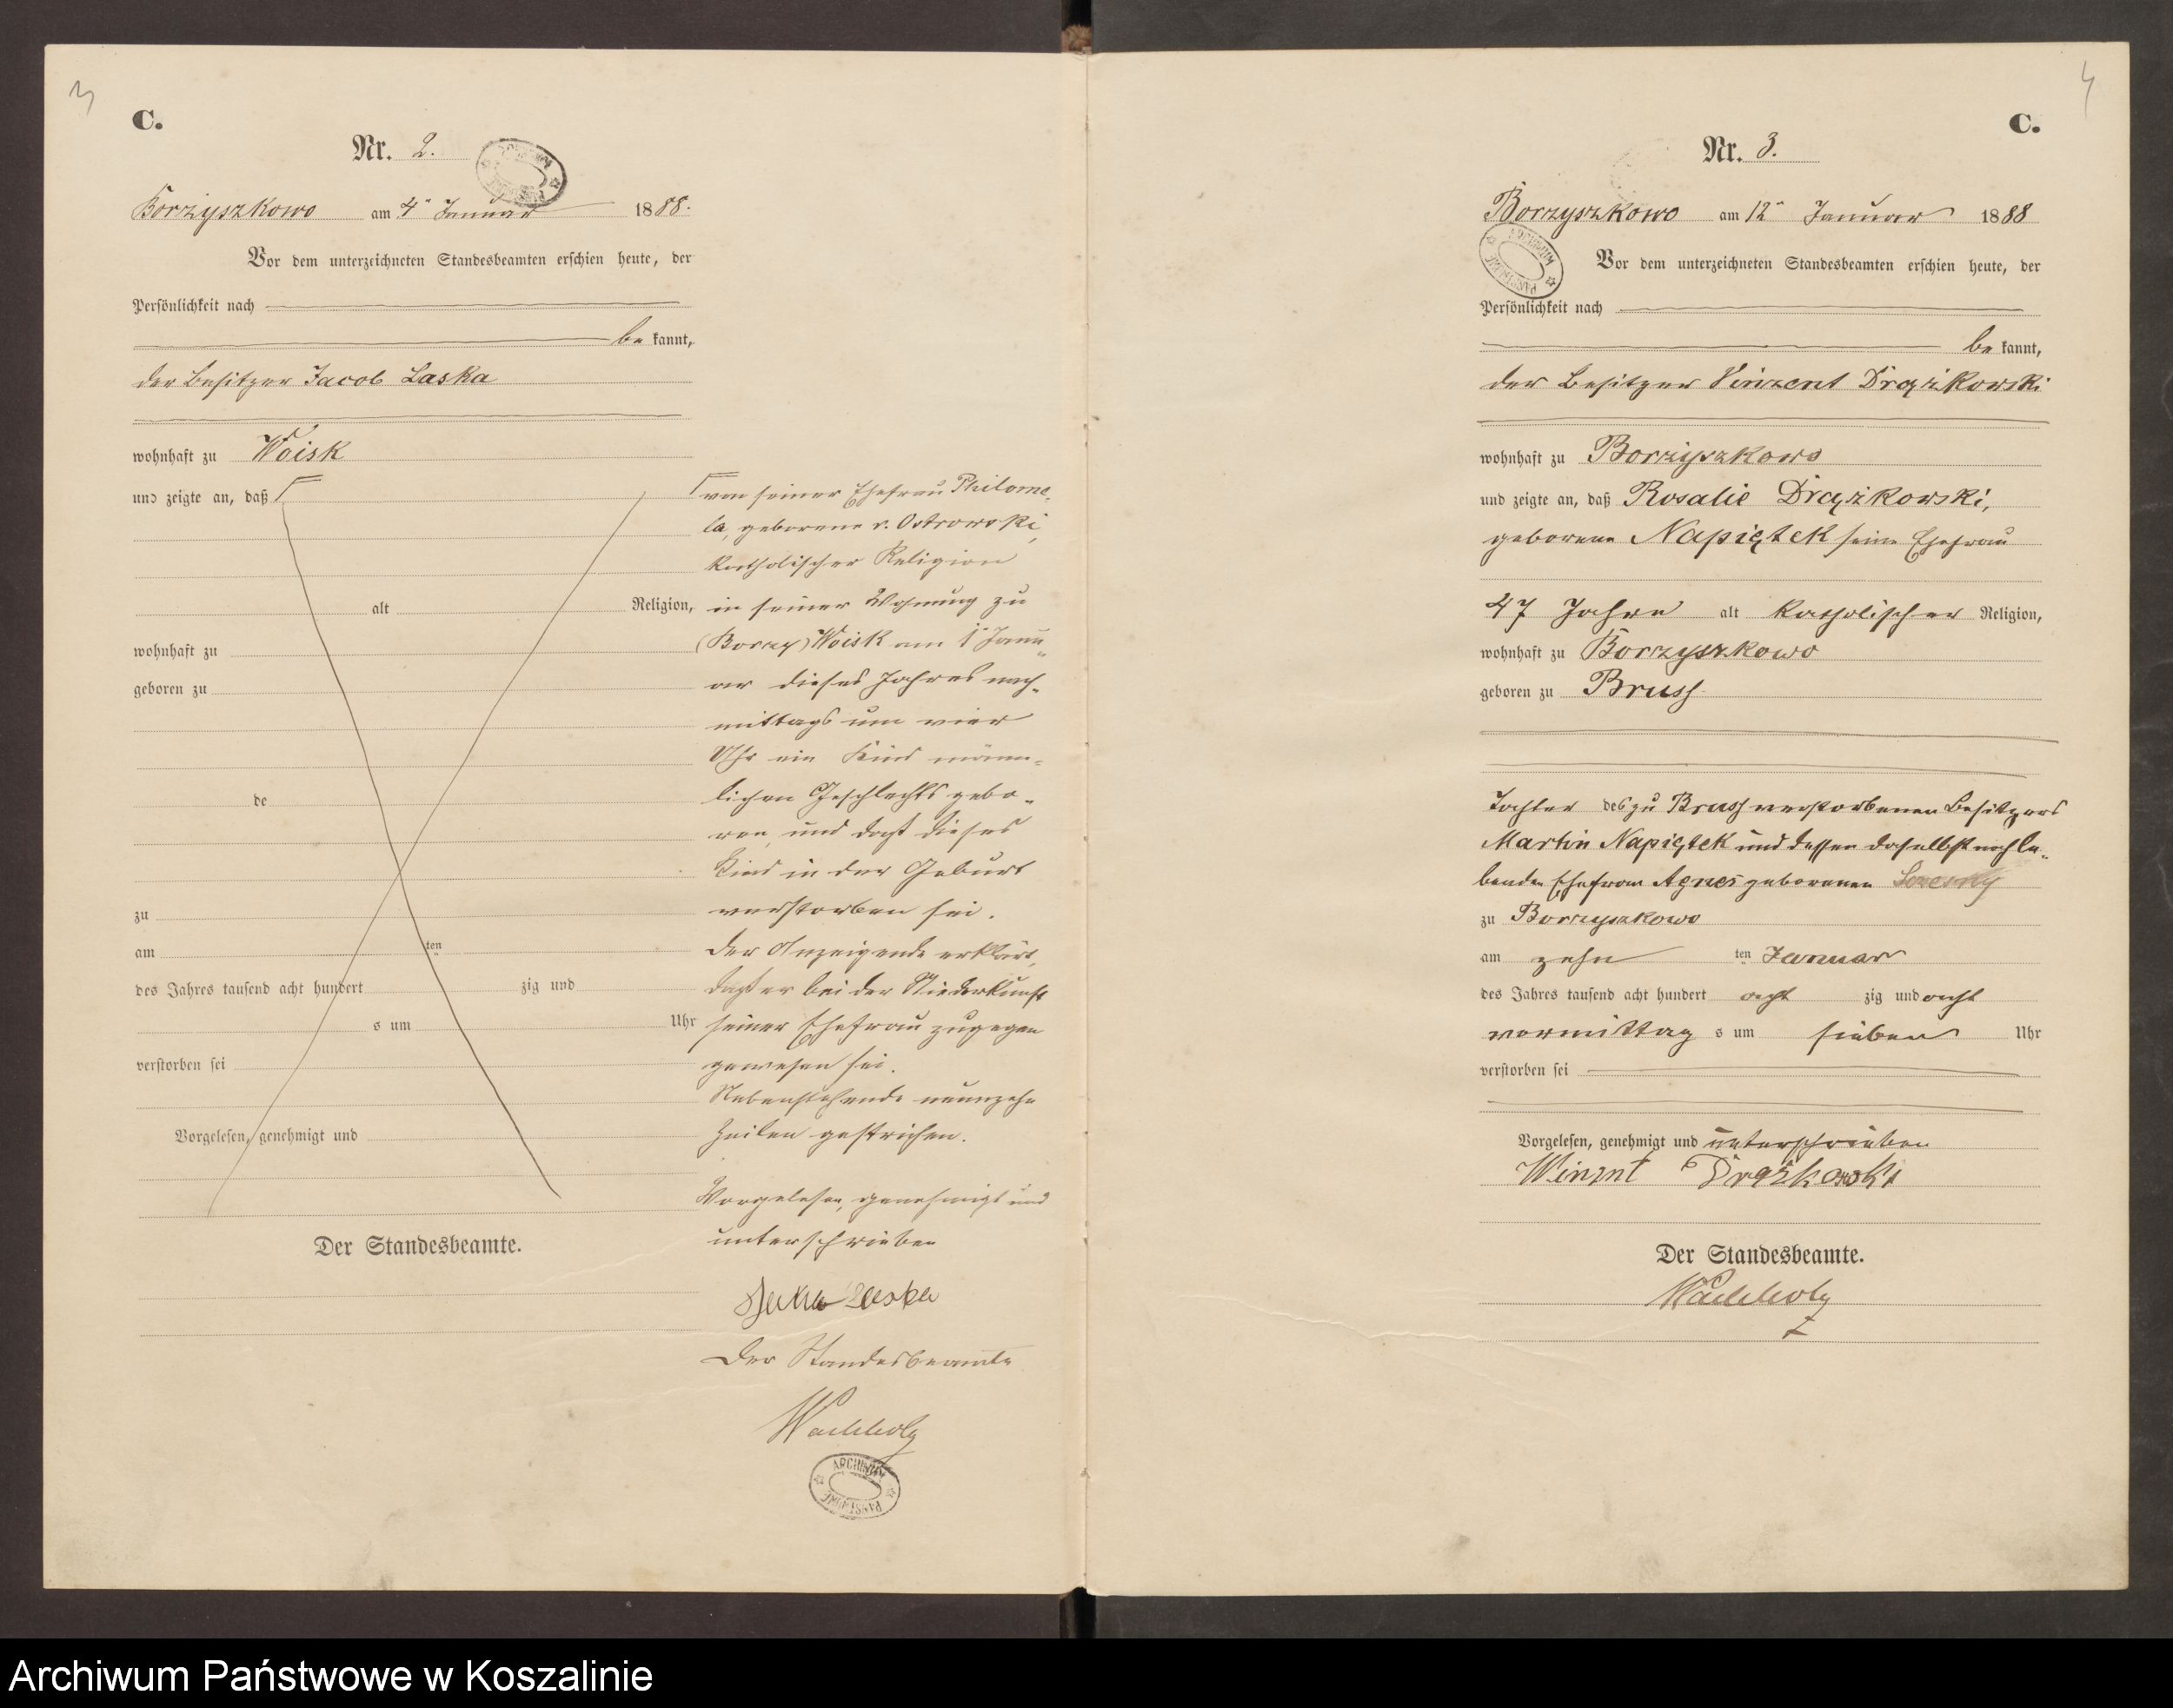 3
C.
Nr. 2.
Borzyszkowo am 4ᵗ Januar 1888.
Vor dem unterzeichneten Standesbeamten erschien heute, der
Persönlichkeit nach
be kannt,
der Besitzer Jacob Laska
wohnhaft zu Woisk
und zeigte an, daß
alt Religion,
wohnhaft zu
geboren zu
de
zu
am ten
des Jahres tausend acht hundert zig und
s um Uhr
verstorben sei
Vorgelesen, genehmigt und
Der Standesbeamte.
von seiner Ehefrau Philome-
la, geborene v. Ostrowski,
katholischer Religion
in seiner Wohnung zu
(Borzy) Woisk am 1ᵗ Janu-
ar dieses Jahres nach-
mittags um vier
Uhr ein Kind männ-
lichen Geschlechts gebo-
ren, und daß dieses
Kind in der Geburt
verstorben sei.
Der Anzeigende erklärt,
daß er bei der Niederkunft
seiner Ehefrau zugegen
gewesen sei.
Nebenstehende neunzehn
Zeilen gestrichen.
Vorgelesen, genehmigt und
unterschrieben
Laska
Der Standesbeamte
Wachholz
ARCHIWUM PAŃSTWOWE
4
C.
Nr. 3.
Borzyszkowo am 12ᵗ Januar 1888
ARCHIWUM PAŃSTWOWE
Vor dem unterzeichneten Standesbeamten erschien heute, der
Persönlichkeit nach
be kannt,
der Besitzer Vinzent Drążkowski
wohnhaft zu Borzyszkowo
und zeigte an, daß Rosalie Drążkowski,
geborene Napiątek seine Ehefrau
47 Jahre alt katholischer Religion,
wohnhaft zu Borzyszkowo
geboren zu Bruss
Tochter des zu Bruss verstorbenen Besitzers
Martin Napiątek und dessen daselbst noch le-
benden Ehefrau Agnes geborenen
zu Borzyszkowo
am zehn ten Januar
des Jahres tausend acht hundert acht zig und acht
vormittag s um sieben Uhr
verstorben sei
Vorgelesen, genehmigt und unterschrieben
Winznt Drążkowski
Der Standesbeamte.
Wachholz
Archiwum Państwowe w Koszalinie